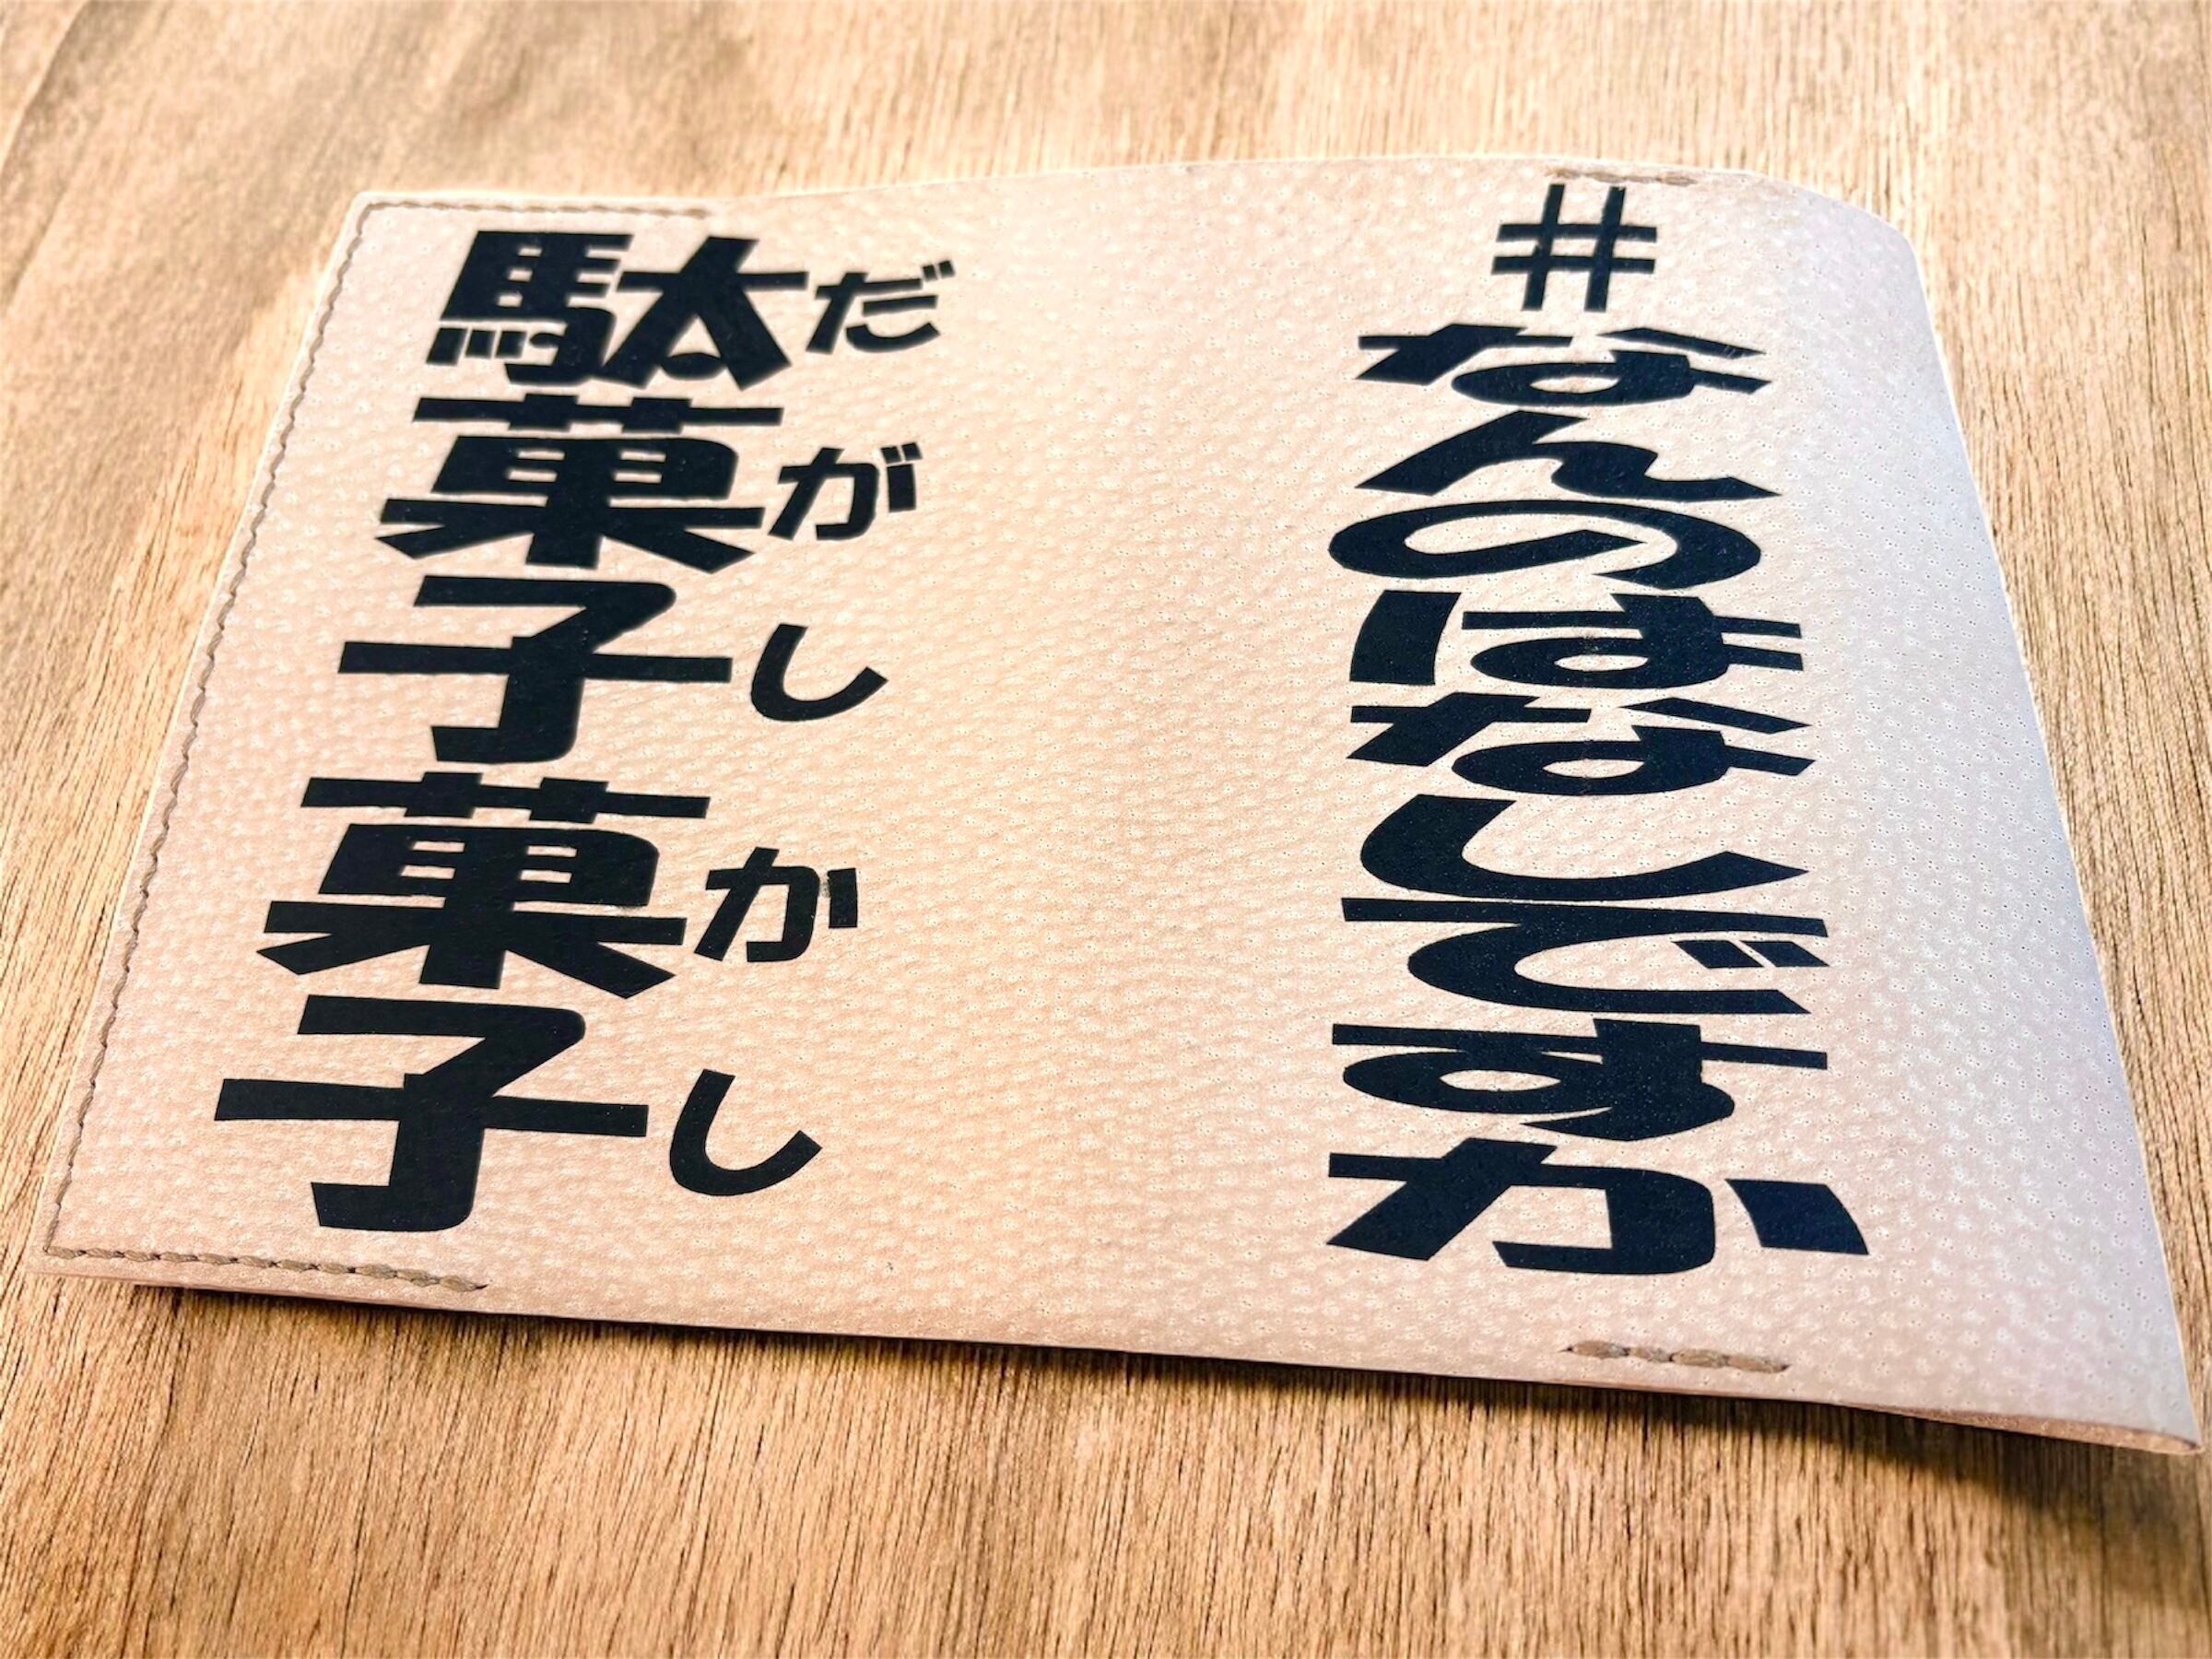 #なんのはなしですか
だがしかし
駄菓子菓子